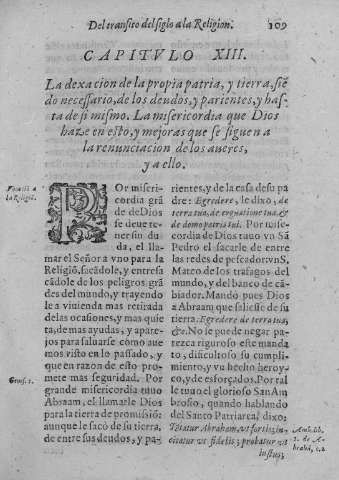 Del transito del siglo a la Religion. 109
CAPITVLO XIII.
La dexacion de la propia patria, y tierra, siẽ
do necessario, de los deudos, y parientes, y has-
ta de si mismo. La misericordia que Dios
haze en esto, y mejoras que se siguen a
la renunciacion de los averes,
y a ello.
la Religiõ.
POr miseri-
cordia grã
de de Dios
se deue te-
ner sin du
da, el lla-
mar el Señor a vno para la
Religiõ, sacãdole, y entresa
cãdole de los peligros grã
des del mundo, y trayendo
le a viuienda mas retirada
de las ocasiones, y mas quie
ta, de mas ayudas, y apare-
jos para saluarse como aue
mos visto en lo passado, y
que en razon de esto prome
te mas seguridad. Por
grande misericordia tiuuo
Abraam, el llamarle Dios
para la tierra de promissiõ:
aunque le sacó de su tierra,
de entre sus deudos, y pa-
Genes. 1.
rientes, y de la casa de su pa
dre: Egredere, le dixo, de
terra tua, de cognatione tua, &
de domo patris tui. Por mise
cordia de Dios tuuo vn Sã
Pedro el sacarle de entre
las redes de pescador: vn S.
Mateo de los trafagos del
mundo, y del banco de cã-
biador. Mandó pues Dios
a Abraam que saliesse de su
tierra: Egredere de terra tua,
&c. No le puede negar pa-
rezca riguroso este manda
to, dificultoso su cumpli-
miento, y vn hecho heroy-
co, y de esforçados. Por tal
le tuuo el glorioso San Am
brosio, quando hablando
del Santo Patriarca, dixo:
Tẽtatur Abraham, vt fortis; in-
citatur vt fidelis; probatur vt
iustus;
Amb. lib.
2. de A-
brahã, c. 2